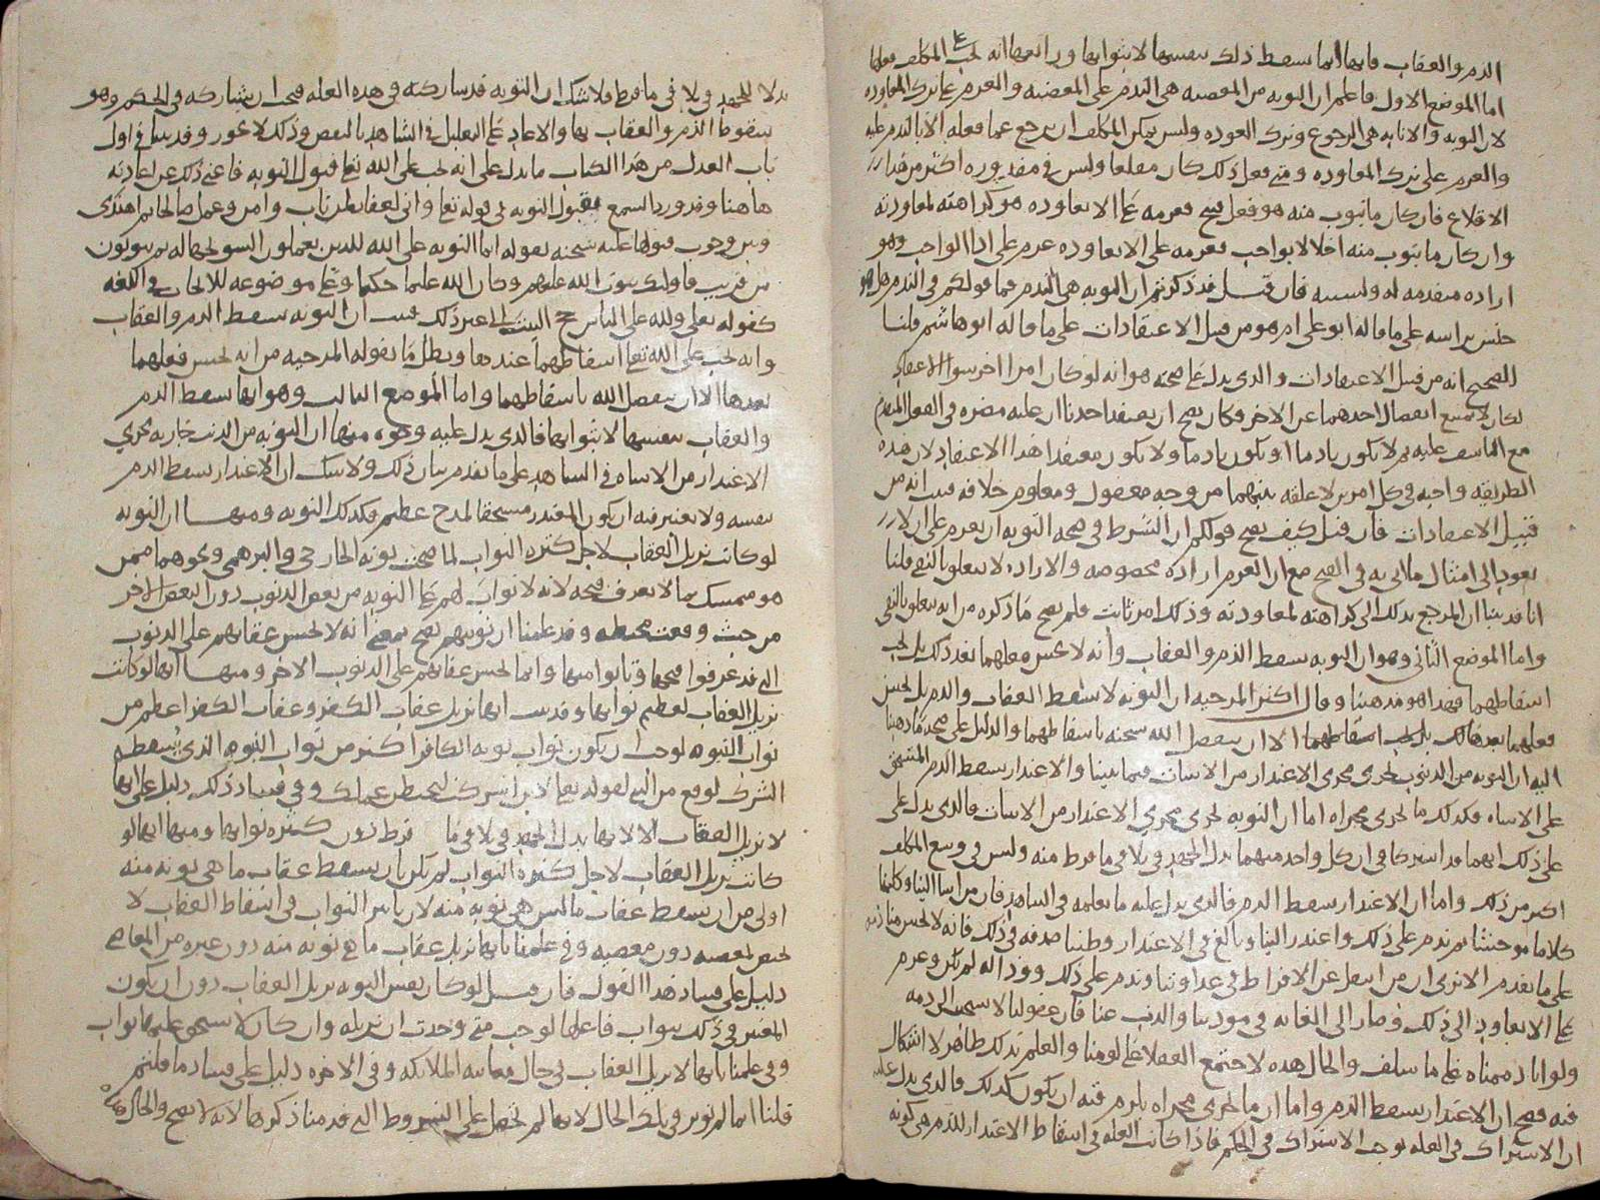 الذم والعقاب فانها انما يسقط ذلك بنفسها لا بثوابها ورابعها انه يجب على المكلف فعلها
اما الموضع الاول فاعلم ان التوبه من المعصيه هي الندم على المعصيه والعزم على ترك المعاوده
لان التوبه والانابه هي الرجوع وترك العوده وليس يمكن المكلف ان يرجع عما فعله الا بالندم عليه
والعزم على ترك المعاوده ومتى فعل ذلك كان مقلعا وليس في مقدوره اكثر من هذا
الاقلاع فان كان ما يتوب منه هو فعل قبيح فعزمه على الا يعاوده هو كراهته لمعاودته
وان كان ما يتوب منه اخلالا بواجب فعزمه على الا يعاوده عزم على ادا الواجب وهو
اراده متقدمه له ولسببه فان قيل قد ذكرتم ان التوبه هي الندم فما قولكم في الندم هل هو
جنس براسه على ما قاله ابو علي ام هو من قبيل الاعتقادات على ما قاله ابو هاشم قلنا
الصحيح انه من قبيل الاعتقادات والذي يدل على صحته هو انه لو كان امرا اخر سوا الاعتقاد
لكان لا يمتنع انفصال احدهما عن الاخر فكان يصح ان يعتقد احدنا ان عليه مضره في الفعل المتقدم
مع التاسف عليه ثم لا يكون نادما او يكون نادما ولا يكون معتقدا هذا الاعتقاد لان هذه
الطريقه واجبه في كل امرين لا علقه بينهما من وجه معقول ومعلوم خلافه فثبت انه من
قبيل الاعتقادات فان قيل كيف يصح قولكم ان الشرط في صحه التوبه ان يعزم على ان لا
يعود الى امثال ما اتى به في القبح مع ان العزم اراده مخصوصه والاراده لا تتعلق بالنفي قلنا
انا قد بينا ان المرجع بذلك الى كراهته لمعاودته وذلك امر ثابت فلم يصح ما ذكره من انه يتعلق بالنفي
واما الموضع الثاني وهو ان التوبه يسقط الذم والعقاب وانه لا يحسن فعلهما بعد ذلك بل يجب
اسقاطهما فهذا هو مذهبنا وقال اكثر المرجيه ان التوبه لا يسقط العقاب والذم بل يحسن
فعلهما بعد ذلك الا ان يتفضل الله سبحنه باسقاطهما والدليل على صحه ما ذهبنا
اليه ان التوبه من الذنوب تجري مجرى الاعتذار من الاسات فيما بيننا والاعتذار يسقط الذم المستحق
على الاساه فكذلك ما يجري مجراه اما ان التوبه تجري مجرى الاعتذار من الاسات فالذي يدل على
على ذلك انهما قد اشتركا في ان كل واحد منهما بذل الجهد في تلافي ما فرط منه وليس في وسع المكلف
اكثر من ذلك واما ان الاعتذار يسقط الذم فالذي يدل عليه ما نعلمه في الشاهد فان من اسا الينا وكلمنا
كلاما موحشا ثم ندم على ذلك واعتذر الينا وبالغ في الاعتذار وظننا صدقه في ذلك فانه لا يحسن منا ذمه
على ما تقدم الا ترى ان من انتقل عن الافراط في عداوتنا وندم على ذلك وود انه لم يكن وعزم
على الا يعاود الى ذلك وصار الى الغايه في مودتنا والذب عنا فان عقولنا لا تسمح الى ذمه
ولو انا ذممناه على ما سلف والحال هذه لاجتمع العقلا على لومنا والعلم بذلك ظاهر لا اشكال
فيه فصح ان الاعتذار يسقط الذم واما ان ما يجري مجراه يلزم فيه ان يكون كذلك فالذي يدل عليه
ان الاشتراك في العله يوجب الاشتراك في الحكم فاذا كانت العله في اسقاط الاعتذار للذم هي كونه
بذلا للجهد في تلافي ما فرط فلا شك ان التوبه قد شاركته في هذه العله فيجب ان يشاركه في الحكم وهو
سقوط الذم والعقاب بها والا عاد على التعليل في الشاهد بالنقض وذلك لا يجوز وقد بينا في اول
باب العدل من هذا الكتاب ما يدل على انه يجب على الله تعا قبول التوبه فاغنى ذلك عن اعادته
هاهنا وقد ورد السمع بقبول التوبه في قوله تعا واني لغفار لمن تاب وامن وعمل صالحا ثم اهتدى
وبين وجوب قبولها عليه سبحنه بقوله انما التوبه على الله للذين يعملون السو بجهاله ثم يتوبون
من قريب فاوليك يتوب الله عليهم وكان الله عليما حكيما وعلى موضوعه للايجاب في اللغه
كقوله تعلى ولله على الناس حج البيت الى غير ذلك فثبت ان التوبه يسقط الذم والعقاب
وانه يجب على الله تعا اسقاطهما عندها وبطل ما يقوله المرجيه من انه يحسن فعلهما
بعدها الا ان يتفضل الله باسقاطهما واما الموضع الثالث وهو انها يسقط الذم
والعقاب بنفسها لا بثوابها فالذي يدل عليه وجوه منها ان التوبه من الذنب جاريه مجرى
الاعتذار من الاساه في الشاهد على ما تقدم بيان ذلك ولا شك ان الاعتذار يسقط الذم
بنفسه ولا يعتبر فيه ان يكون المعتذر مستحقا لمدح عظيم فكذلك التوبه ومنها ان التوبه
لو كانت تزيل العقاب لاجل كثره الثواب لما صحت توبه الخارجي والبرهمي ونحوهما ممن
هو متمسك بما لا يعرف قبحه لانه لا ثواب لهم على التوبه من بعض الذنوب دون البعض الاخر
من حيث وقعت محبطه وقد علمنا ان توبتهم تصح بمعنى انه لا يحسن عقابهم على الذنوب
التي قد عرفوا قبحها وتابوا منها وانما يحسن عقابهم على الذنوب الاخر ومنها انها لو كانت
تزيل العقاب لعظم ثوابها وقد ثبت انها تزيل عقاب الكفر وعقاب الكفر اعظم من
ثواب النبوه لوجب ان يكون ثواب توبه الكافر اكثر من ثواب النبوه الذي يسقطه
الشرك لو وقع من النبي لقوله تعا لين اشركت ليحبطن عملك وفي فساد ذلك دليل على انها
لا تزيل العقاب الا لانها بذل الجهد في تلافي ما فرط دون كثره ثوابها ومنها انها لو
كانت تزيل العقاب لاجل كثره الثواب لم تكن بان يسقط عقاب ما هي توبه منه
اولى من ان يسقط عقاب ما ليس هي توبه منه لان تاثير الثواب في اسقاط العقاب لا
يختص لمعصيه دون معصيه وفي علمنا بانها تزيل عقاب ما هي توبه منه دون غيره من المعاصي
دليل على فساد هذا القول فان قيل لو كان نفس التوبه تزيل العقاب دون ان يكون
المعتبر في ذلك بثواب فاعلها لوجب متى وجدت ان تزيله وان كان لا يستحق عليها ثواب
وفي علمنا بانها لا تزيل العقاب في حال معاينه الملائكه وفي الاخره دليل على فساد ما قلتم
قلنا انما لم توثر في تلك الحال لانها لم تحصل على الشروط التي قدمنا ذكرها لانه لا يصح والحال هذه